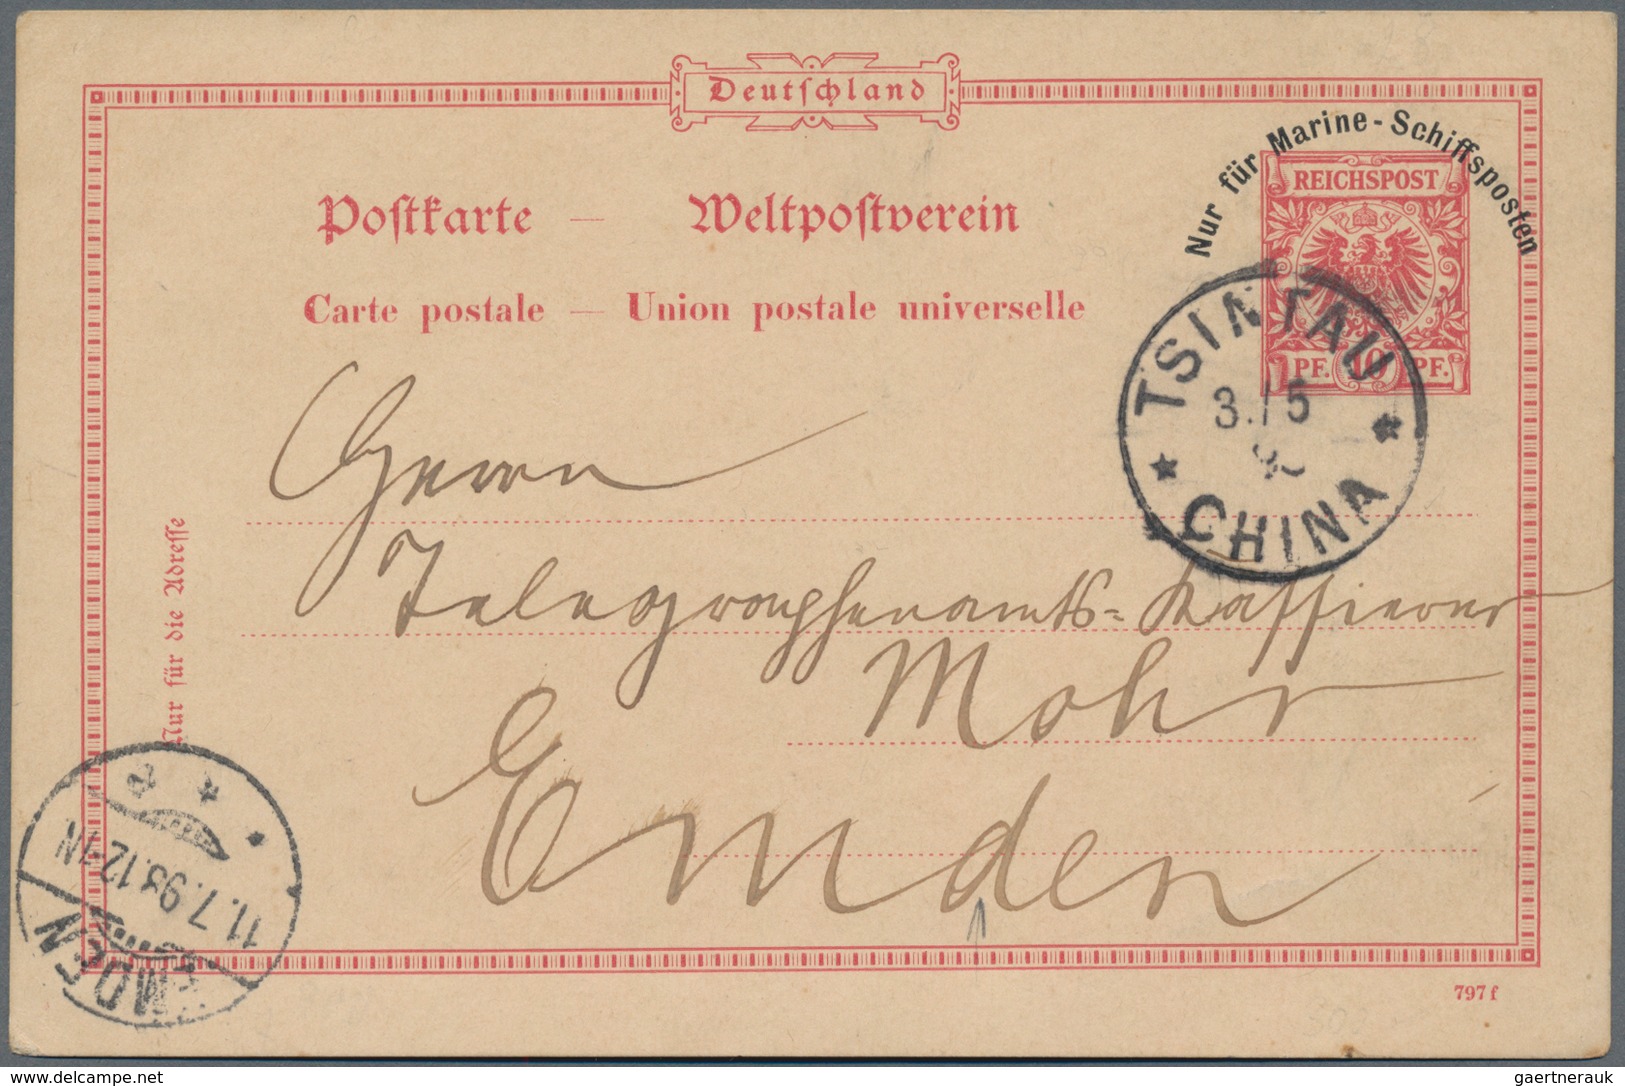 Deutschland
Nur für Marine-Schiffsposten
REICHSPOST
PF. 10 PF.
Postkarte — Weltpostverein
Carte postale — Union postale universelle
TSINTAU
3./5
CHINA
Herrn
Telegraphenamts-Kassierer
Mohr
Emden
Nur für die Adresse
11.7.98.12-1N
EMDEN
797 f
www.oldthing.de
gaertnerauk